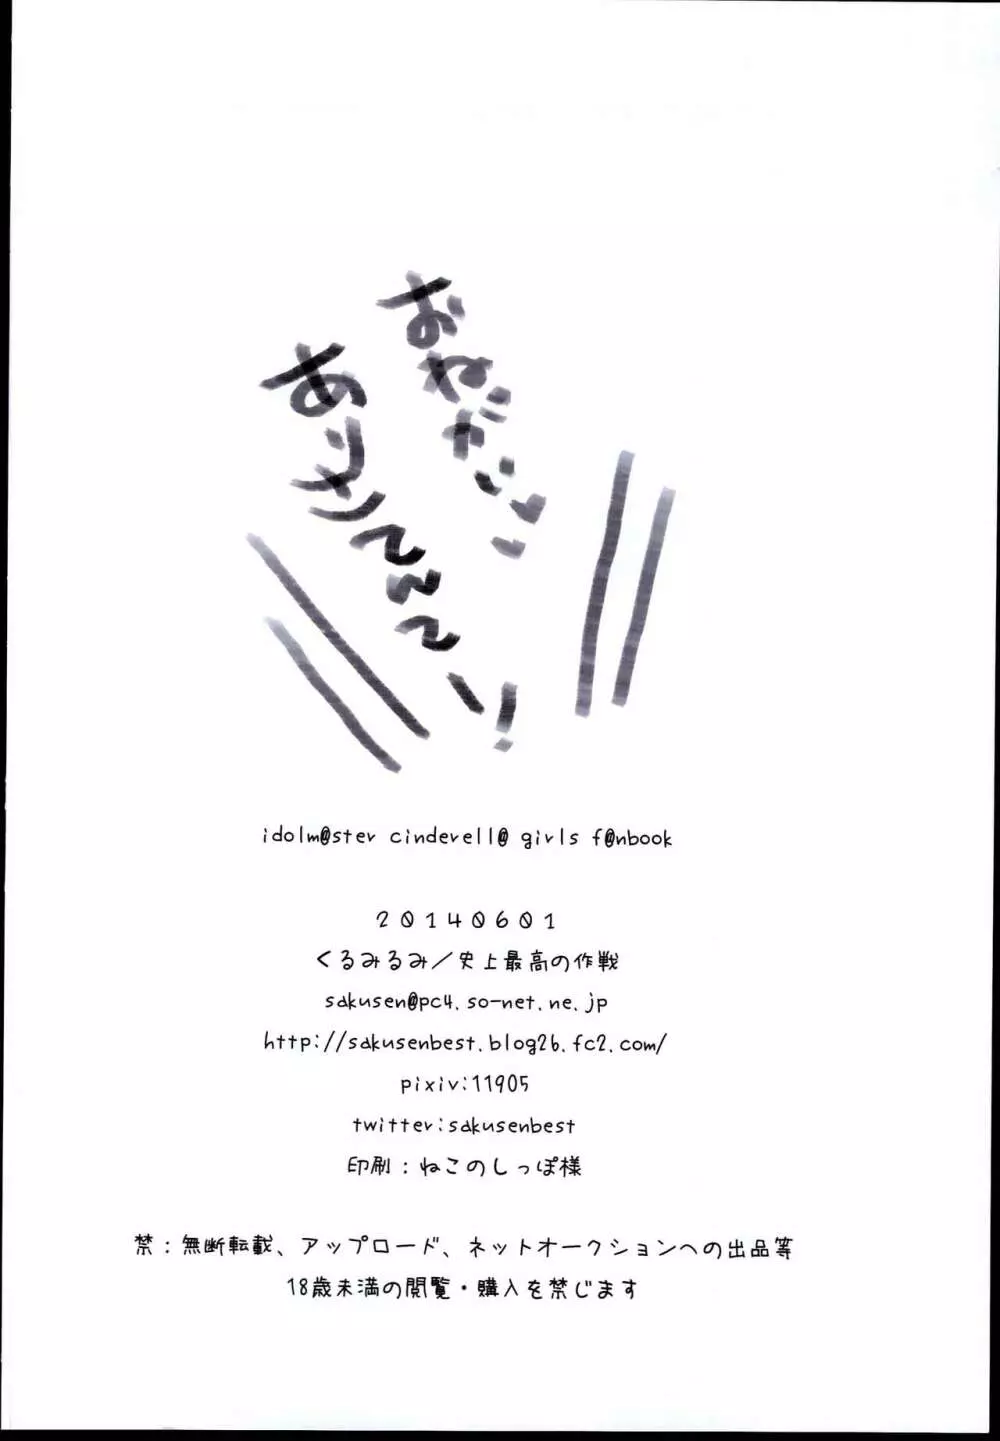 おねだり
ありすてんてー！
idolm@ster cinderell@ girls f@nbook
２０１４０６０１
くるみるみ／史上最高の作戦
sakusen@pc4.so-net.ne.jp
http://sakusenbest.blog26.fc2.com/
pixiv:11905
twitter:sakusenbest
印刷：ねこのしっぽ様
禁：無断転載、アップロード、ネットオークションへの出品等
18歳未満の閲覧・購入を禁じます